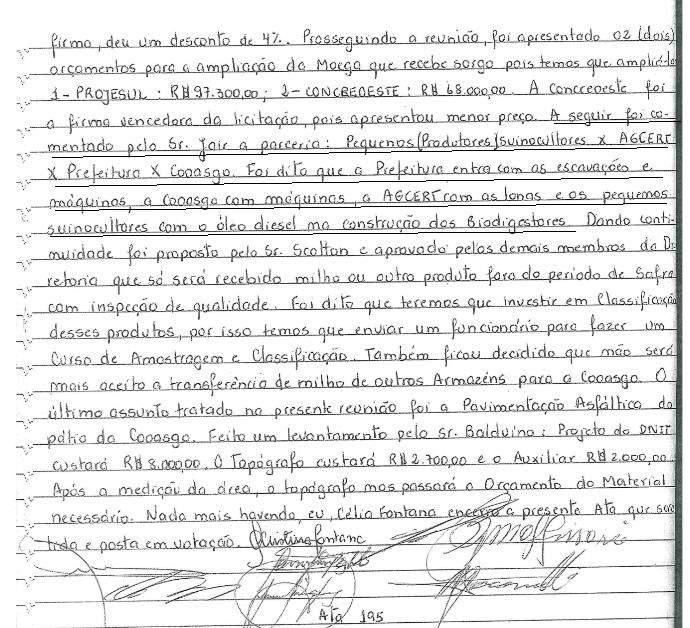 firma, deu um desconto de 4%. Prosseguindo a reunião, foi apresentado 02 (dois)
orçamentos para a ampliação da Moega que recebe sorgo pois temos que ampliá-la
1- PROJESUL: R$ 97.300,00; 2- CONCREOESTE: R$ 68.000,00. A Concreoeste foi
a firma vencedora da licitação, pois apresentou menor preço. A seguir foi co-
mentado pelo Sr. Jair a parceria: Pequenos (Produtores) Suinocultores X AGCERT
X Prefeitura X Cooasgo. Foi dito que a Prefeitura entra com as escavações e
máquinas, a Cooasgo com máquinas, a AGCERT com as lonas e os pequenos
suinocultores com o óleo diesel na construção dos Biodigestores. Dando conti-
nuidade foi proposto pelo Sr. Scolton e aprovado pelos demais membros da Di
retoria que só será recebido milho ou outro produto fora do período de Safra
com inspecção de qualidade. Foi dito que teremos que investir em Classificação
desses produtos, por isso temos que enviar um funcionário para fazer um
Curso de Amostragem e Classificação. Também ficou decidido que não será
mais aceito a transferência de milho de outros Armazéns para a Cooasgo. O
último assunto tratado na presente reunião foi a Pavimentação Asfáltica do
pátio da Cooasgo. Feito um levantamento pelo Sr. Balduino: Projeto do DNIT
custará R$ 8.000,00. O Topógrafo custará R$ 2.700,00 e o Auxiliar R$ 2.000,00.
Após a medição da área, o topógrafo nos passará o Orçamento do Material
necessário. Nada mais havendo, eu, Célia Fontana encerro a presente Ata que será
lida e posta em votação.
Ata 195